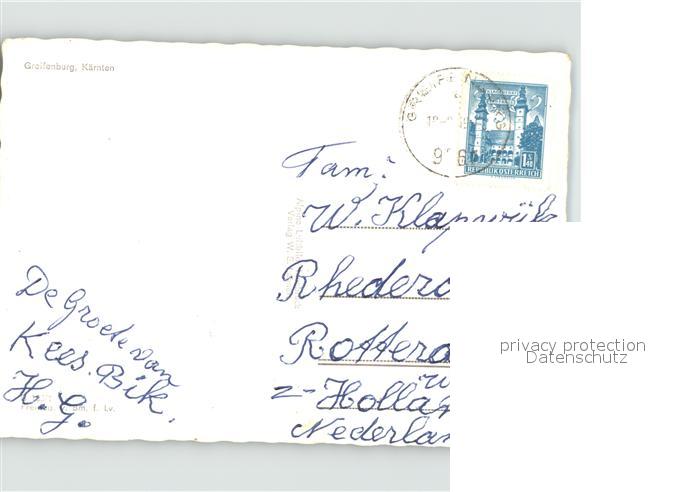 Greifenburg, Kärnten
GREIFENBURG
REPUBLIK ÖSTERREICH
Fam:
W. Klapwijk
Rhedero
Rotterd
Z-Holla
Nederlan
De Groete van
Kees. Bik.
H. G.
privacy protection
Datenschutz